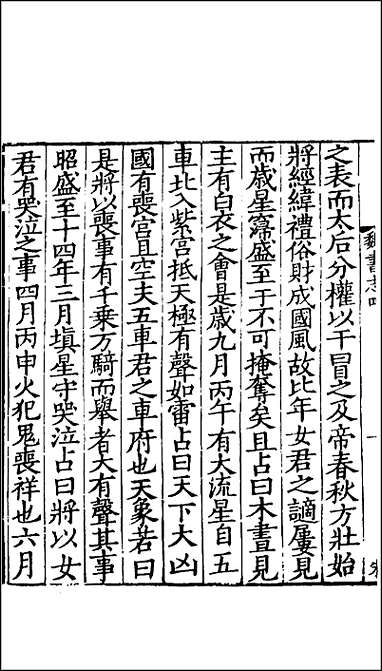 魏書志四
之表而太后分權以干冒之及帝春秋方壯始
將經緯禮俗財成國風故比年女君之謫屢見
而歳星寖盛至于不可掩奪矣且占曰木晝見
主有白衣之會是歳九月丙午有大流星自五
車北入紫宫抵天極有聲如雷占曰天下大凶
國有喪宫且空夫五車君之車府也天象若曰
是將以喪事有千乗万騎而舉者大有聲其事
昭盛至十四年三月塡星守哭泣占曰將以女
君有哭泣之事四月丙申火犯鬼喪祥也六月